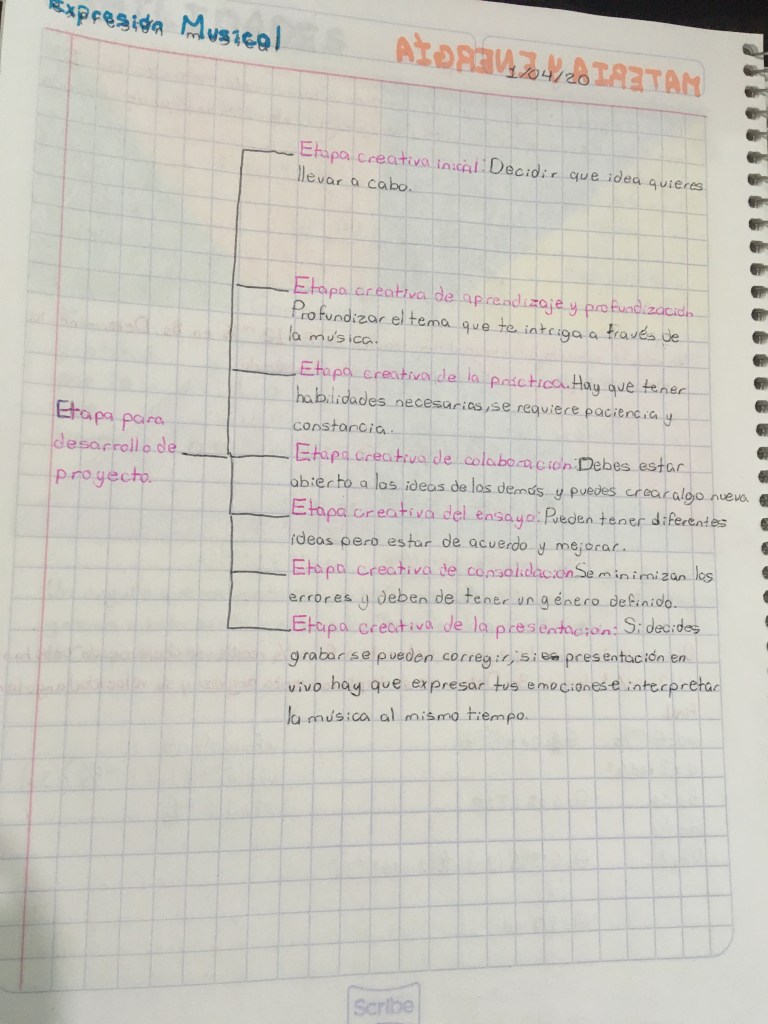 Expresión Musical
MATERIA Y ENERGÍA
1/04/20
Etapa creativa inicial: Decidir que idea quieres
llevar a cabo.
Etapa creativa de aprendizaje y profundización
Profundizar el tema que te intriga a través de
la música.
Etapa creativa de la práctica. Hay que tener
habilidades necesarias, se requiere paciencia y
constancia.
Etapa para
desarrollo de
proyecto.
Etapa creativa de colaboración: Debes estar
abierto a las ideas de los demás y puedes crear algo nueva
Etapa creativa del ensayo: Pueden tener diferentes
ideas pero estar de acuerdo y mejorar.
Etapa creativa de consolidación Se minimizan los
errores y deben de tener un género definido.
Etapa creativa de la presentación: Si decides
grabar se pueden corregir, si es presentación en
vivo hay que expresar tus emociones e interpretar
la música al mismo tiempo.
Scribe